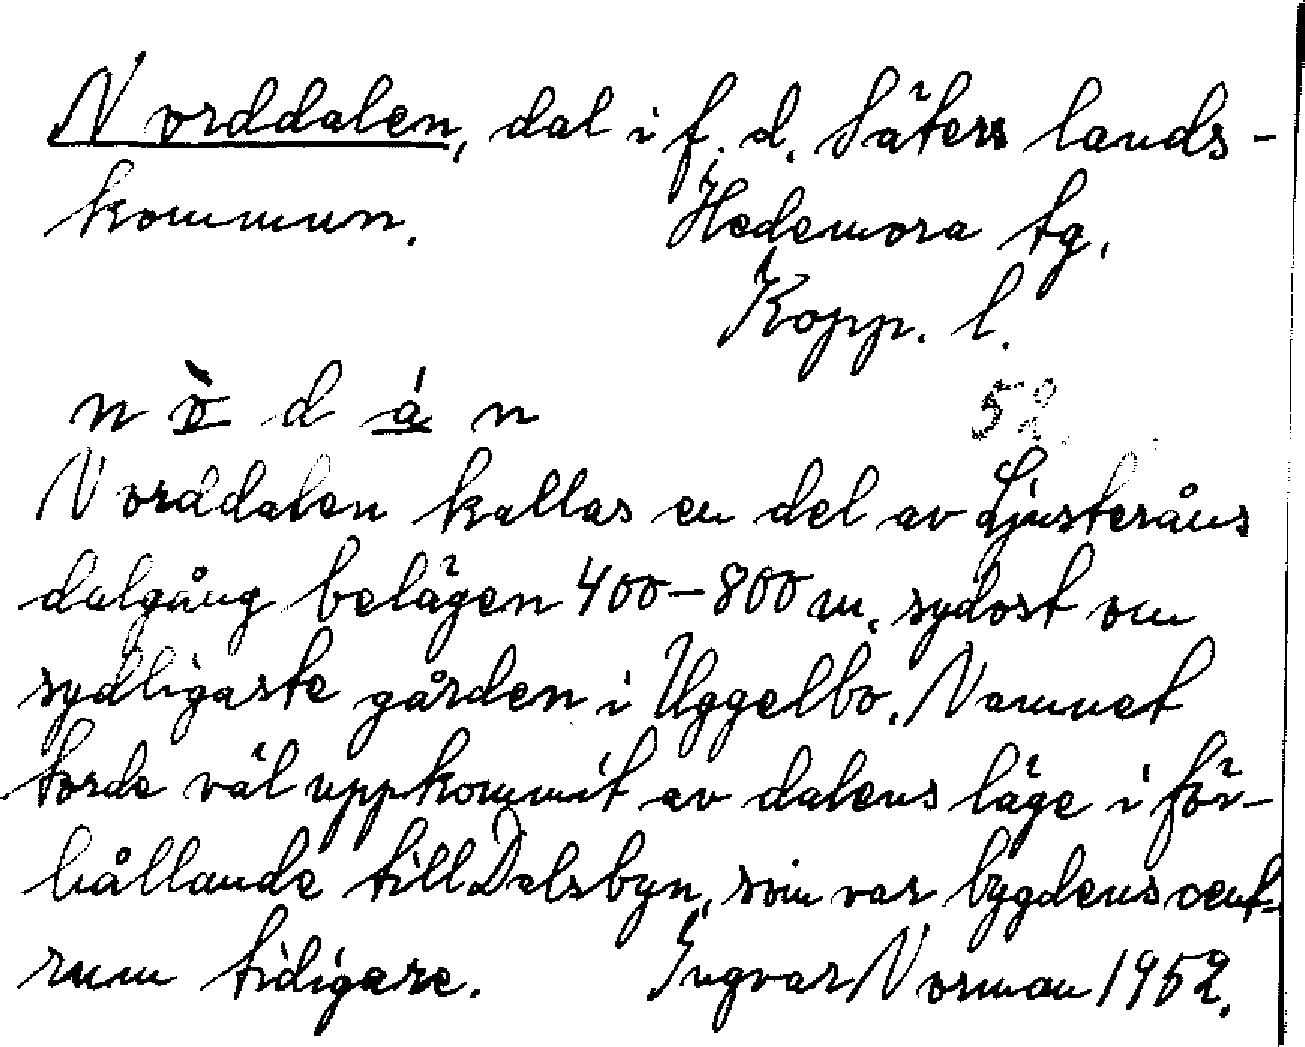 Norddalen, dal i f. d. Säters lands-
kommun. Hedemora tg.
Kopp. l.
n ò d á n 52
Norddalen kallas en del av Ljusteråns
dalgång belägen 400-800 m. sydost om
sydligaste gården i Uggelbo. Namnet
torde väl uppkommit av dalens läge i för-
hållande till Dalsbyn, som var bygdens cent-
rum tidigare. Ingvar Norman 1952.